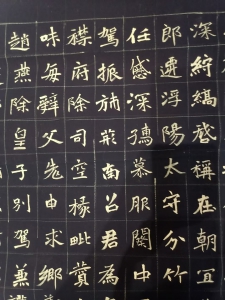 深紵縞啓稱在朝宜
郎遷浮陽太守分竹
任感深穗慕服闋中
駕振旆荊南召君為
襟府除司空掾毗贊
味每辭父申求鄉
趙燕除皇子別駕兼